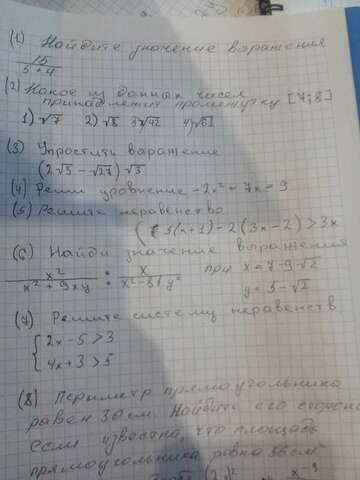 (1) Найдите значение выражения
15
5+4
(2) Какое из данных чисел
принадлежит промежутку [7;8]
1) √7 2) √8 3) √42 4) √61
(3) Упростить выражение
(2√3 - √27) √3
(4) Реши уровнение -2x² - 7x = 9
(5) Решите неравенство
3(x+1) - 2(3x-2) > 3x
(6) Найди значение выражения
x² / x²+9xy : x / x²-81y² при x = 7-9√2
y = 3-√2
(7) Решите систему неравенств
2x-5>3
4x+3>5
(8) Периметр прямоугольника
равен 30 см. Найдите его стороны
если известно, что площадь
прямоугольника равна 56 см²